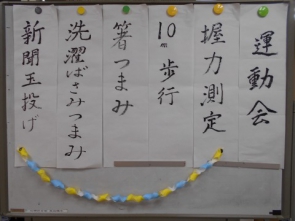 運動会
握力測定
10m歩行
箸つまみ
洗濯ばさみつまみ
新聞玉投げ